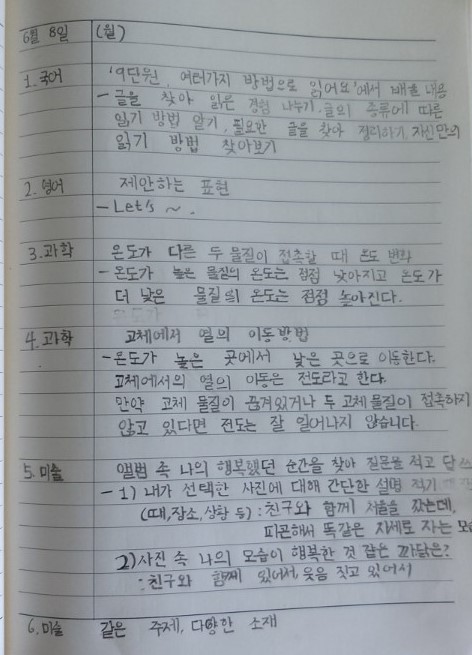 6월 8일 (월)
1. 국어 '9단원. 여러가지 방법으로 읽어요'에서 배울 내용
- 글을 찾아 읽은 경험 나누기, 글의 종류에 따른
읽기 방법 알기, 필요한 글을 찾아 정리하기, 자신만의
읽기 방법 찾아보기
2. 영어 제안하는 표현
- Let's ~.
3. 과학 온도가 다른 두 물질이 접촉할 때 온도 변화
- 온도가 높은 물질의 온도는 점점 낮아지고 온도가
더 낮은 물질의 온도는 점점 높아진다.
4. 과학 고체에서 열의 이동방법
- 온도가 높은 곳에서 낮은 곳으로 이동한다.
고체에서의 열의 이동은 전도라고 한다.
만약 고체 물질이 끊겨있거나 두 고체 물질이 접촉하지
않고 있다면 전도는 잘 일어나지 않습니다.
5. 미술 앨범 속 나의 행복했던 순간을 찾아 질문을 적고 답
- 1) 내가 선택한 사진에 대해 간단한 설명 적기
(때, 장소, 상황 등) : 친구와 함께 서울을 갔는데,
피곤해서 똑같은 자세로 자는
2) 사진 속 나의 모습이 행복한 것 같은 까닭은?
: 친구와 함께 있어서, 웃음 짓고 있어서
6. 미술 같은 주제, 다양한 소재